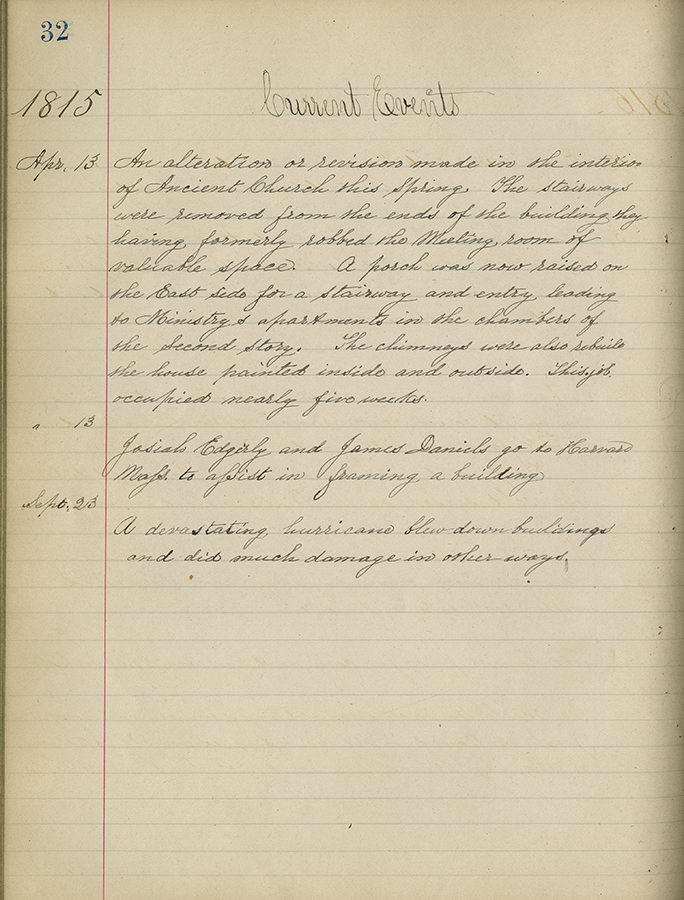 32
1815 Current Events
Apr. 13 An alteration or revision made in the interior
of Ancient Church this Spring. The stairways
were removed from the ends of the building they
having formerly robbed the Meeting room of
valuable space. A porch was now raised on
the East side for a stairway and entry leading
to Ministry's apartments in the chambers of
the second story. The chimneys were also rebuilt
the house painted inside and outside. This job
occupied nearly five weeks.
" 13
Josiah Edgerly and James Daniels go to Harvard
Mass. to assist in framing a building
Sept. 23
A devastating hurricane blew down buildings
and did much damage in other ways.